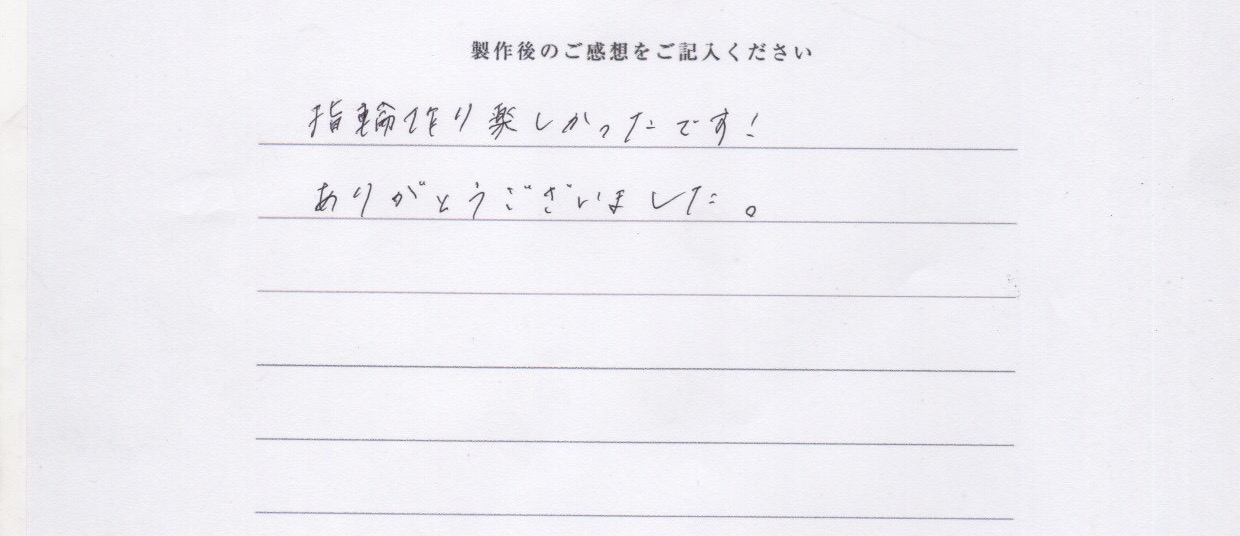 製作後のご感想をご記入ください
指輪作り楽しかったです!
ありがとうございました。